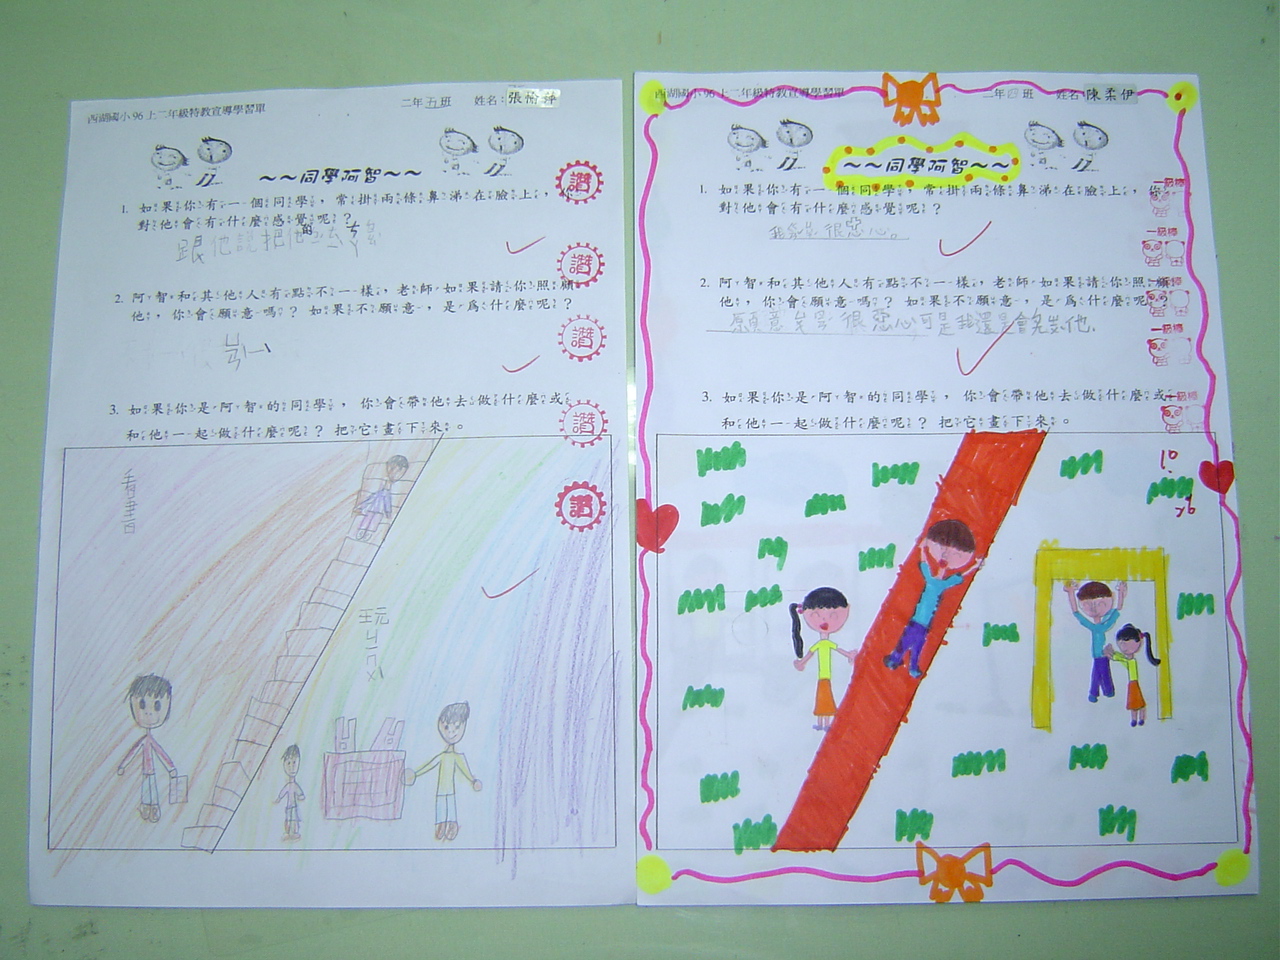 西湖國小 96 上二年級特教宣導學習單
二年五班 姓名：張愉
～～同學阿智～～
1. 如果你有一個同學，常掛兩條鼻涕在臉上，你
對他會有什麼感覺呢？
跟他說把他的
2. 阿智和其他人有點不一樣，老師如果請你照顧
他，你會願意嗎？如果不願意，是為什麼呢？
3. 如果你是阿智的同學，你會帶他去做什麼或
和他一起做什麼呢？把它畫下來。
看書
玩ㄐㄧㄣ
讚
讚
讚
讚
讚
西湖國小 96 上二年級特教宣導學習單
二年四班 姓名：陳柔伊
～～同學阿智～～
1. 如果你有一個同學，常掛兩條鼻涕在臉上，你
對他會有什麼感覺呢？
我會很惡心。
2. 阿智和其他人有點不一樣，老師如果請你照顧
他，你會願意嗎？如果不願意，是為什麼呢？
願意 很惡心可是我還是會 他.
3. 如果你是阿智的同學，你會帶他去做什麼或
和他一起做什麼呢？把它畫下來。
一級棒
一級棒
一級棒
一級棒
一級棒